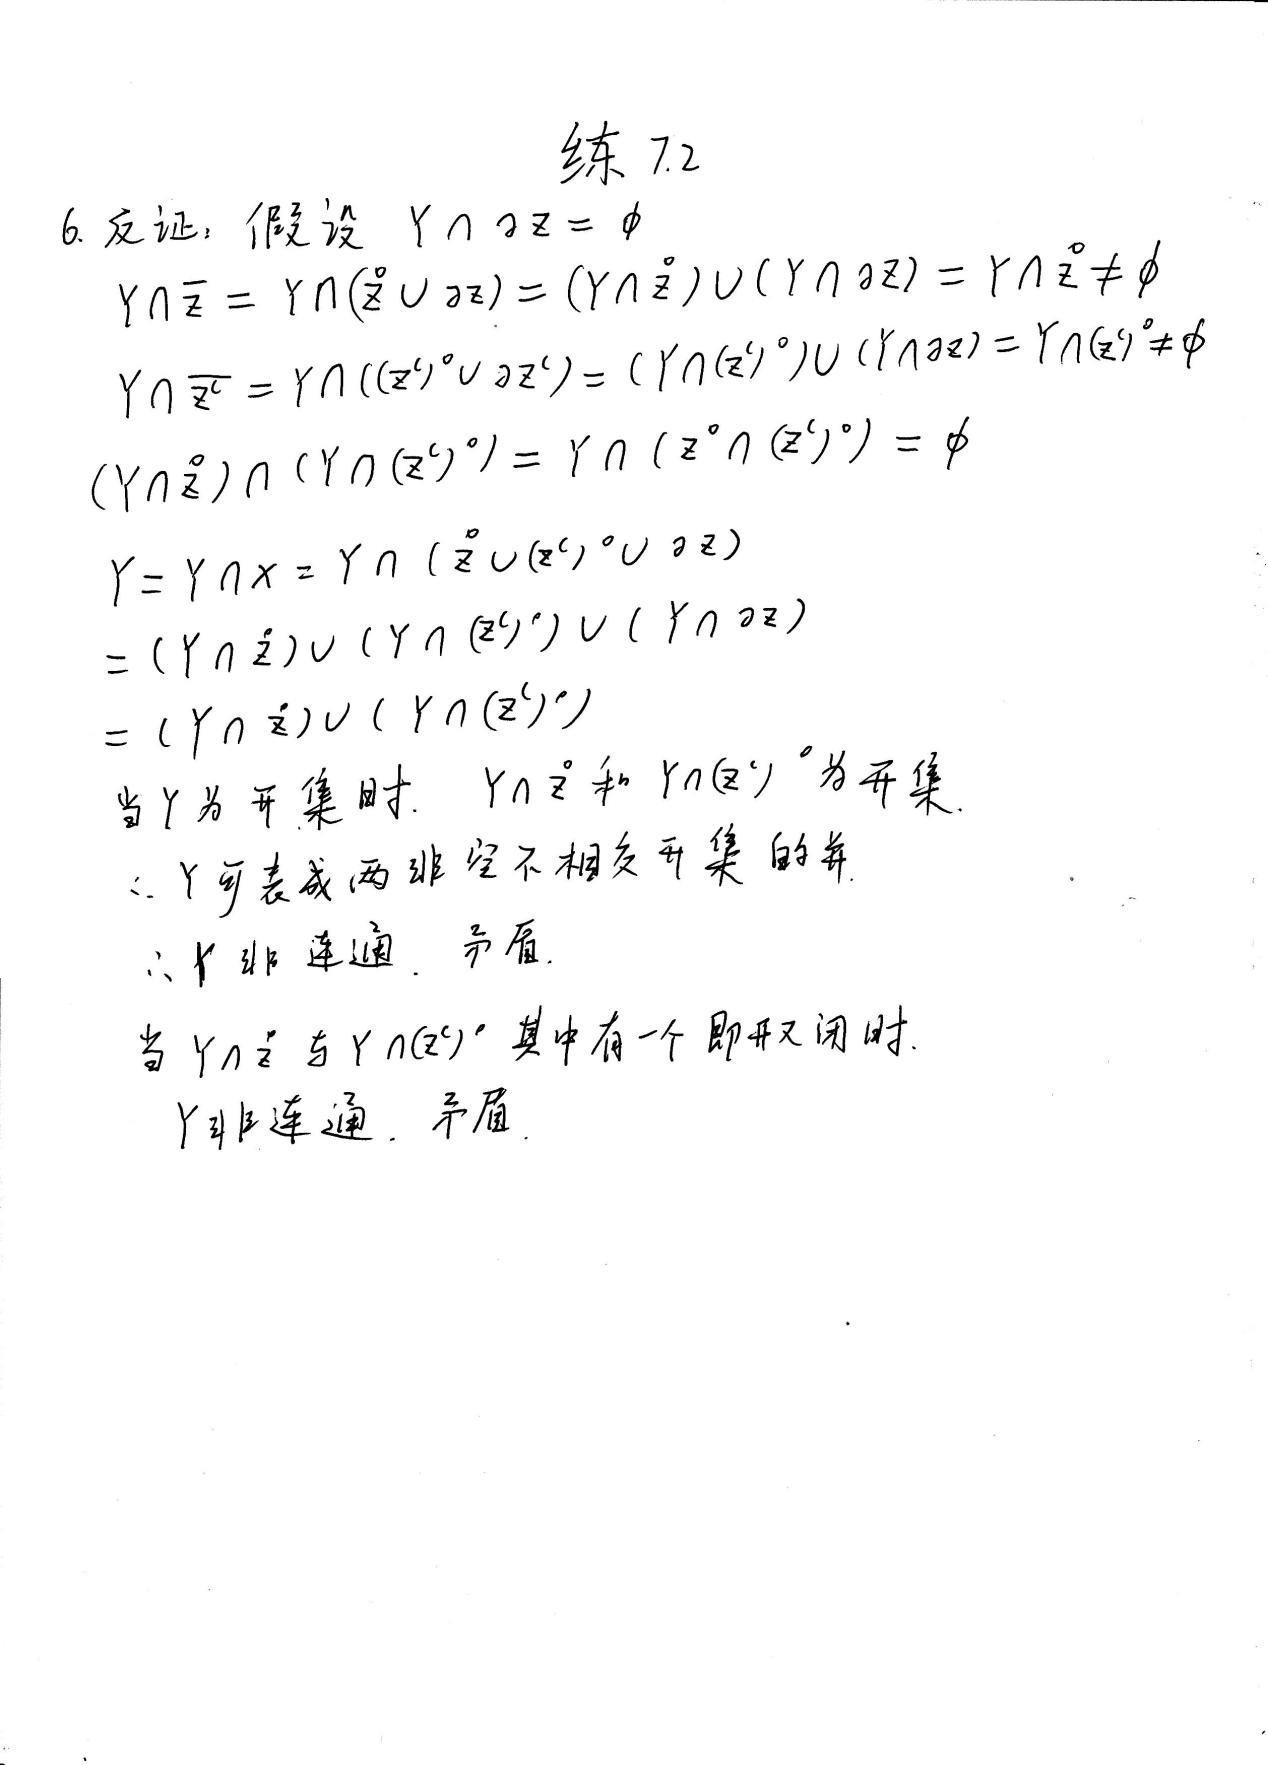 练 7.2
6. 反证: 假设 Y ∩ ∂Z = ϕ
Y∩Z̅ = Y∩(Z̊ ∪ ∂Z) = (Y∩Z̊)∪(Y∩∂Z) = Y∩Z̊ ≠ ϕ
Y∩\overline{Z^c} = Y∩((Z^c)°∪∂Z^c) = (Y∩(Z^c)°)∪(Y∩∂Z) = Y∩(Z^c)°≠ϕ
(Y∩Z̊)∩(Y∩(Z^c)°) = Y∩(Z°∩(Z^c)°) = ϕ
Y = Y∩X = Y∩(Z̊∪(Z^c)°∪∂Z)
= (Y∩Z̊)∪(Y∩(Z^c)°)∪(Y∩∂Z)
= (Y∩Z̊)∪(Y∩(Z^c)°)
当Y为开集时. Y∩Z̊ 和 Y∩(Z^c)°为开集.
∴ Y可表成两非空不相交开集的并.
∴ Y非连通. 矛盾.
当 Y∩Z̊ 与 Y∩(Z^c)° 其中有一个即开又闭时.
Y非连通. 矛盾.